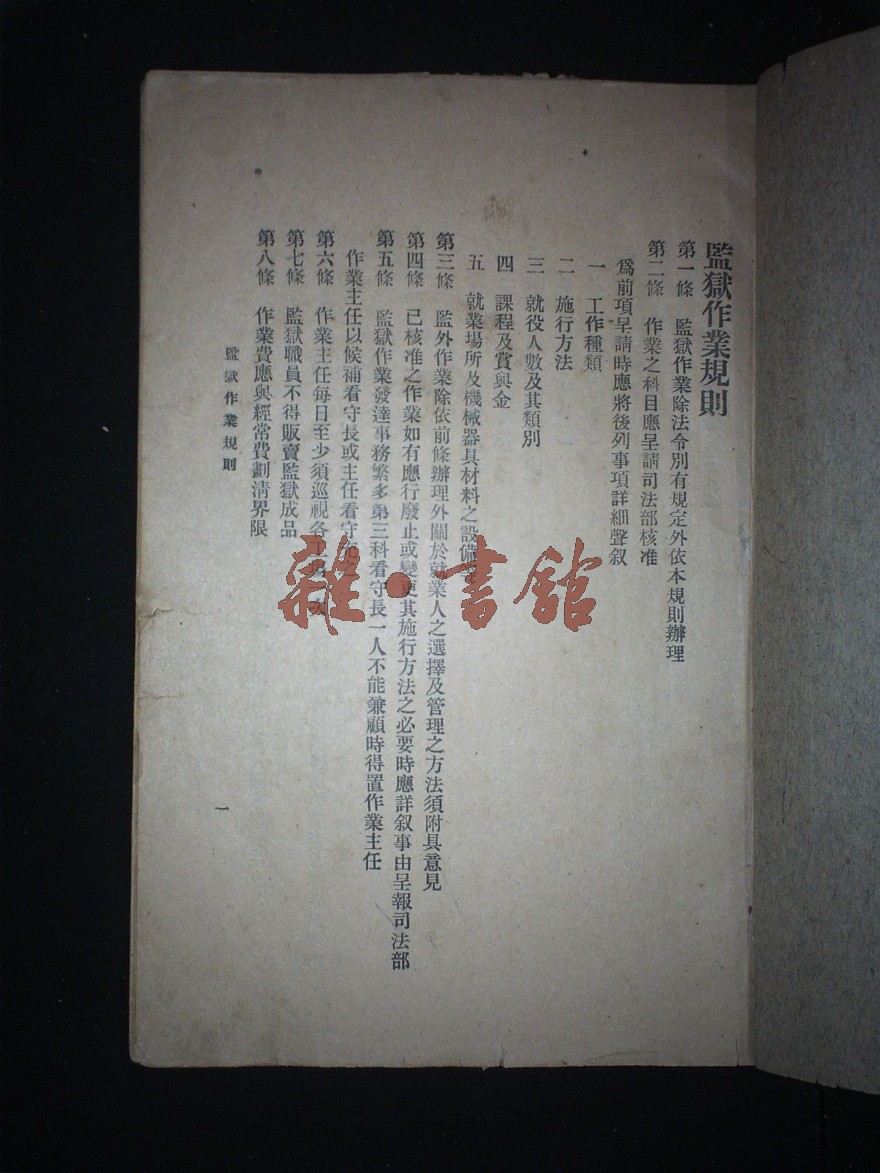 監獄作業規則
第一條　監獄作業除法令別有規定外依本規則辦理
第二條　作業之科目應呈請司法部核准
爲前項呈請時應將後列事項詳細聲叙
一　工作種類
二　施行方法
三　就役人數及其類別
四　課程及賞與金
五　就業場所及機械器具材料之設備
第三條　監外作業除依前條辦理外關於就業人之選擇及管理之方法須附具意見
第四條　已核准之作業如有應行廢止或變更其施行方法之必要時應詳叙事由呈報司法部
第五條　監獄作業發達事務繁多第三科看守長一人不能兼顧時得置作業主任
作業主任以候補看守長或主任看守
第六條　作業主任每日至少須巡視各
第七條　監獄職員不得販賣監獄成品
第八條　作業費應與經常費劃清界限
監獄作業規則
一
雜·書館